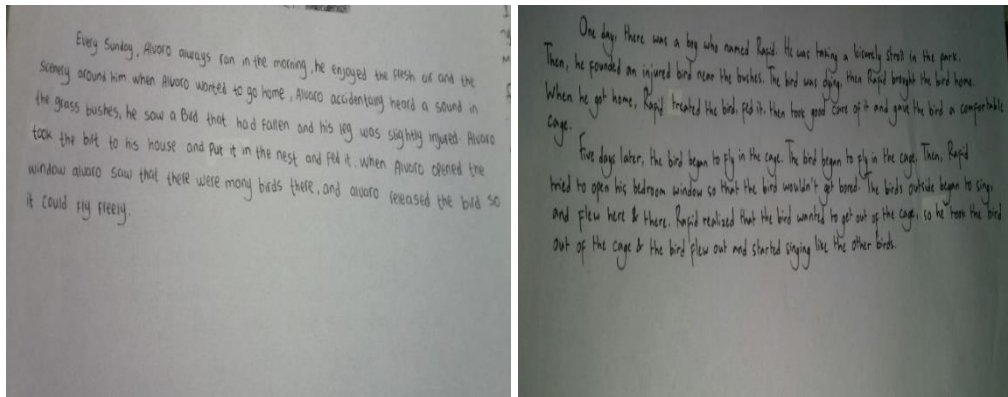 Every Sunday, Alvaro always ran in the morning, he enjoyed the fresh air and the
scenery around him. when Alvaro wanted to go home, Alvaro accidentally heard a sound in
the grass bushes, he saw a Bird that had fallen and his leg was slightly injured. Alvaro
took the to his house and Put it in the nest and Fed it. when Alvaro opened the
window alvaro saw that there were many birds there, and alvaro released the bird so
it could Fly Freely.
One day, there was a boy who named Rapid. He was taking a stroll in the park.
Then, he founded an injured bird near the bushes. The bird was dying, then Rapid brought the bird home.
When he got home, Rapid treated the bird, fed it, then took good care of it and gave the bird a comfortable
cage.
Five days later, the bird began to fly in the cage. The bird began to fly in the cage. Then, Rapid
tried to open his bedroom window so that the bird wouldn't get bored. The birds outside began to sing,
and flew here & there. Rapid realized that the bird wanted to get out of the cage, so he took the bird
out of the cage & the bird flew out and started singing like the other birds.